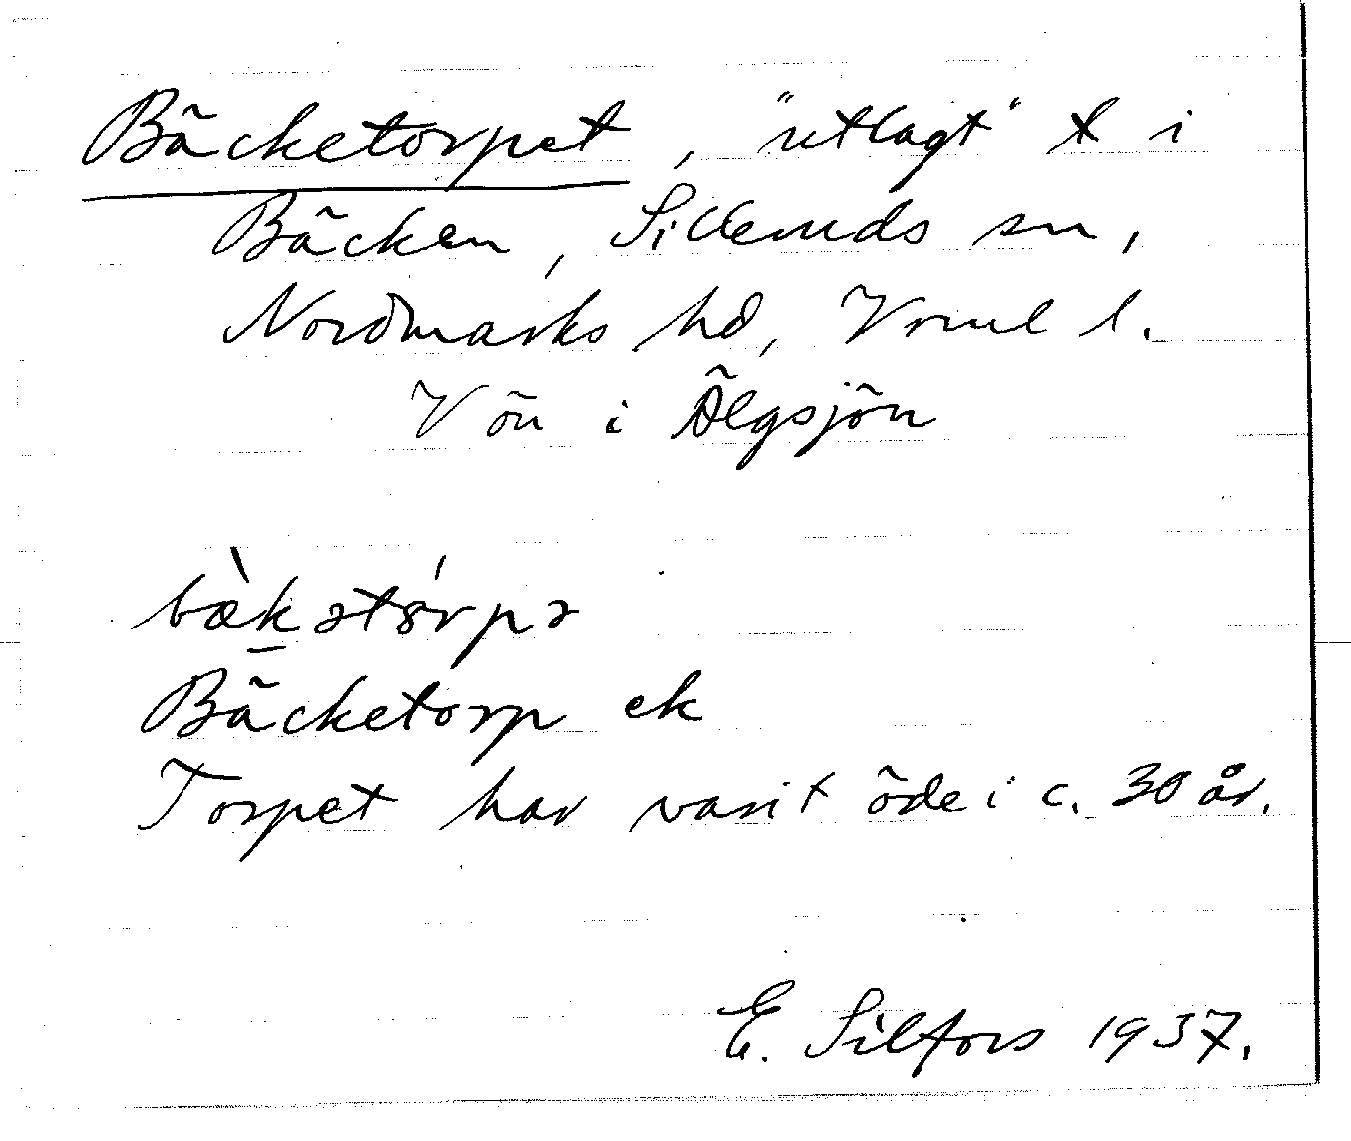 Bäcketorpet, "utlagt" t i
Bäcken, Sillemuds sn,
Nordmarks hd, Vrml l.
V ön i Älgsjön
bæ̀kətórpə
Bäcketorp ek
Torpet har varit öde i c. 30 år.
E. Silfors 1937.